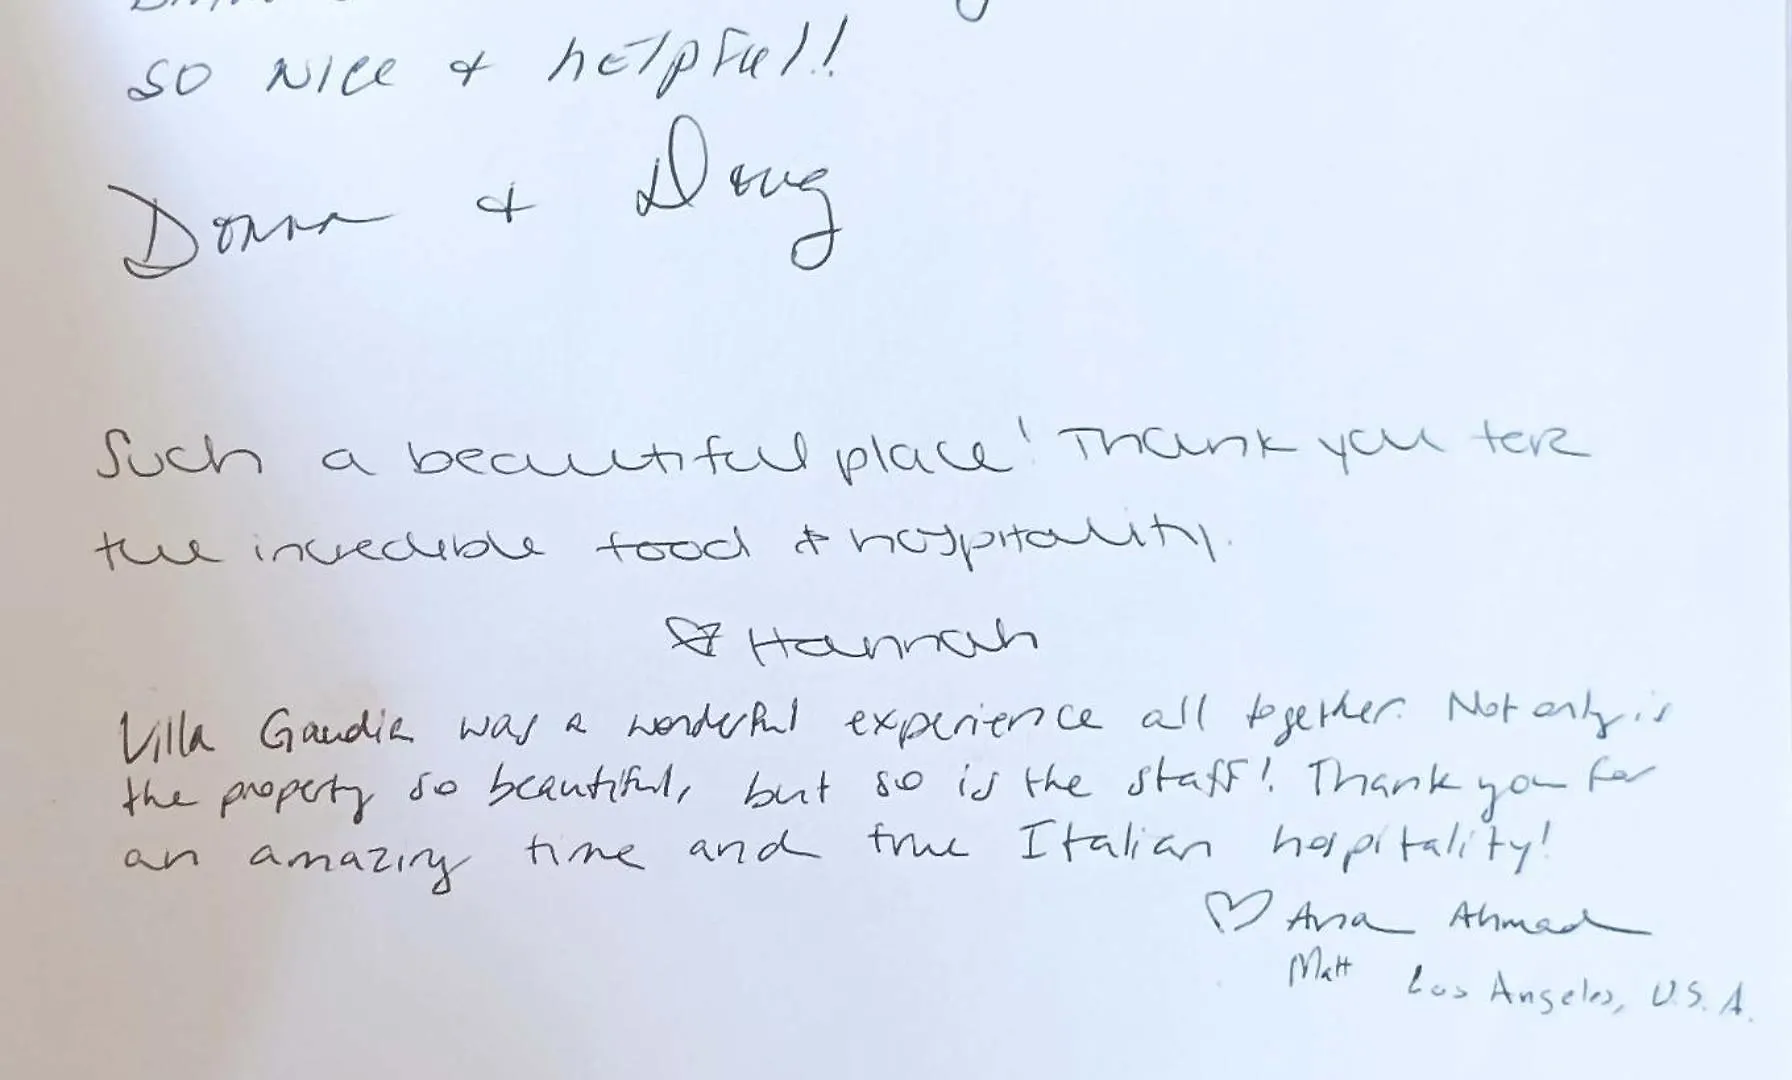 so nice & helpful!!
Donna & Doug
Such a beautiful place! Thank you for
the incredible food & hospitality.
♡ Hannah
Villa Gaudia was a wonderful experience all together. Not only is
the property so beautiful, but so is the staff! Thank you for
an amazing time and true Italian hospitality!
♡ Ahmad
Matt Los Angeles, U.S.A.